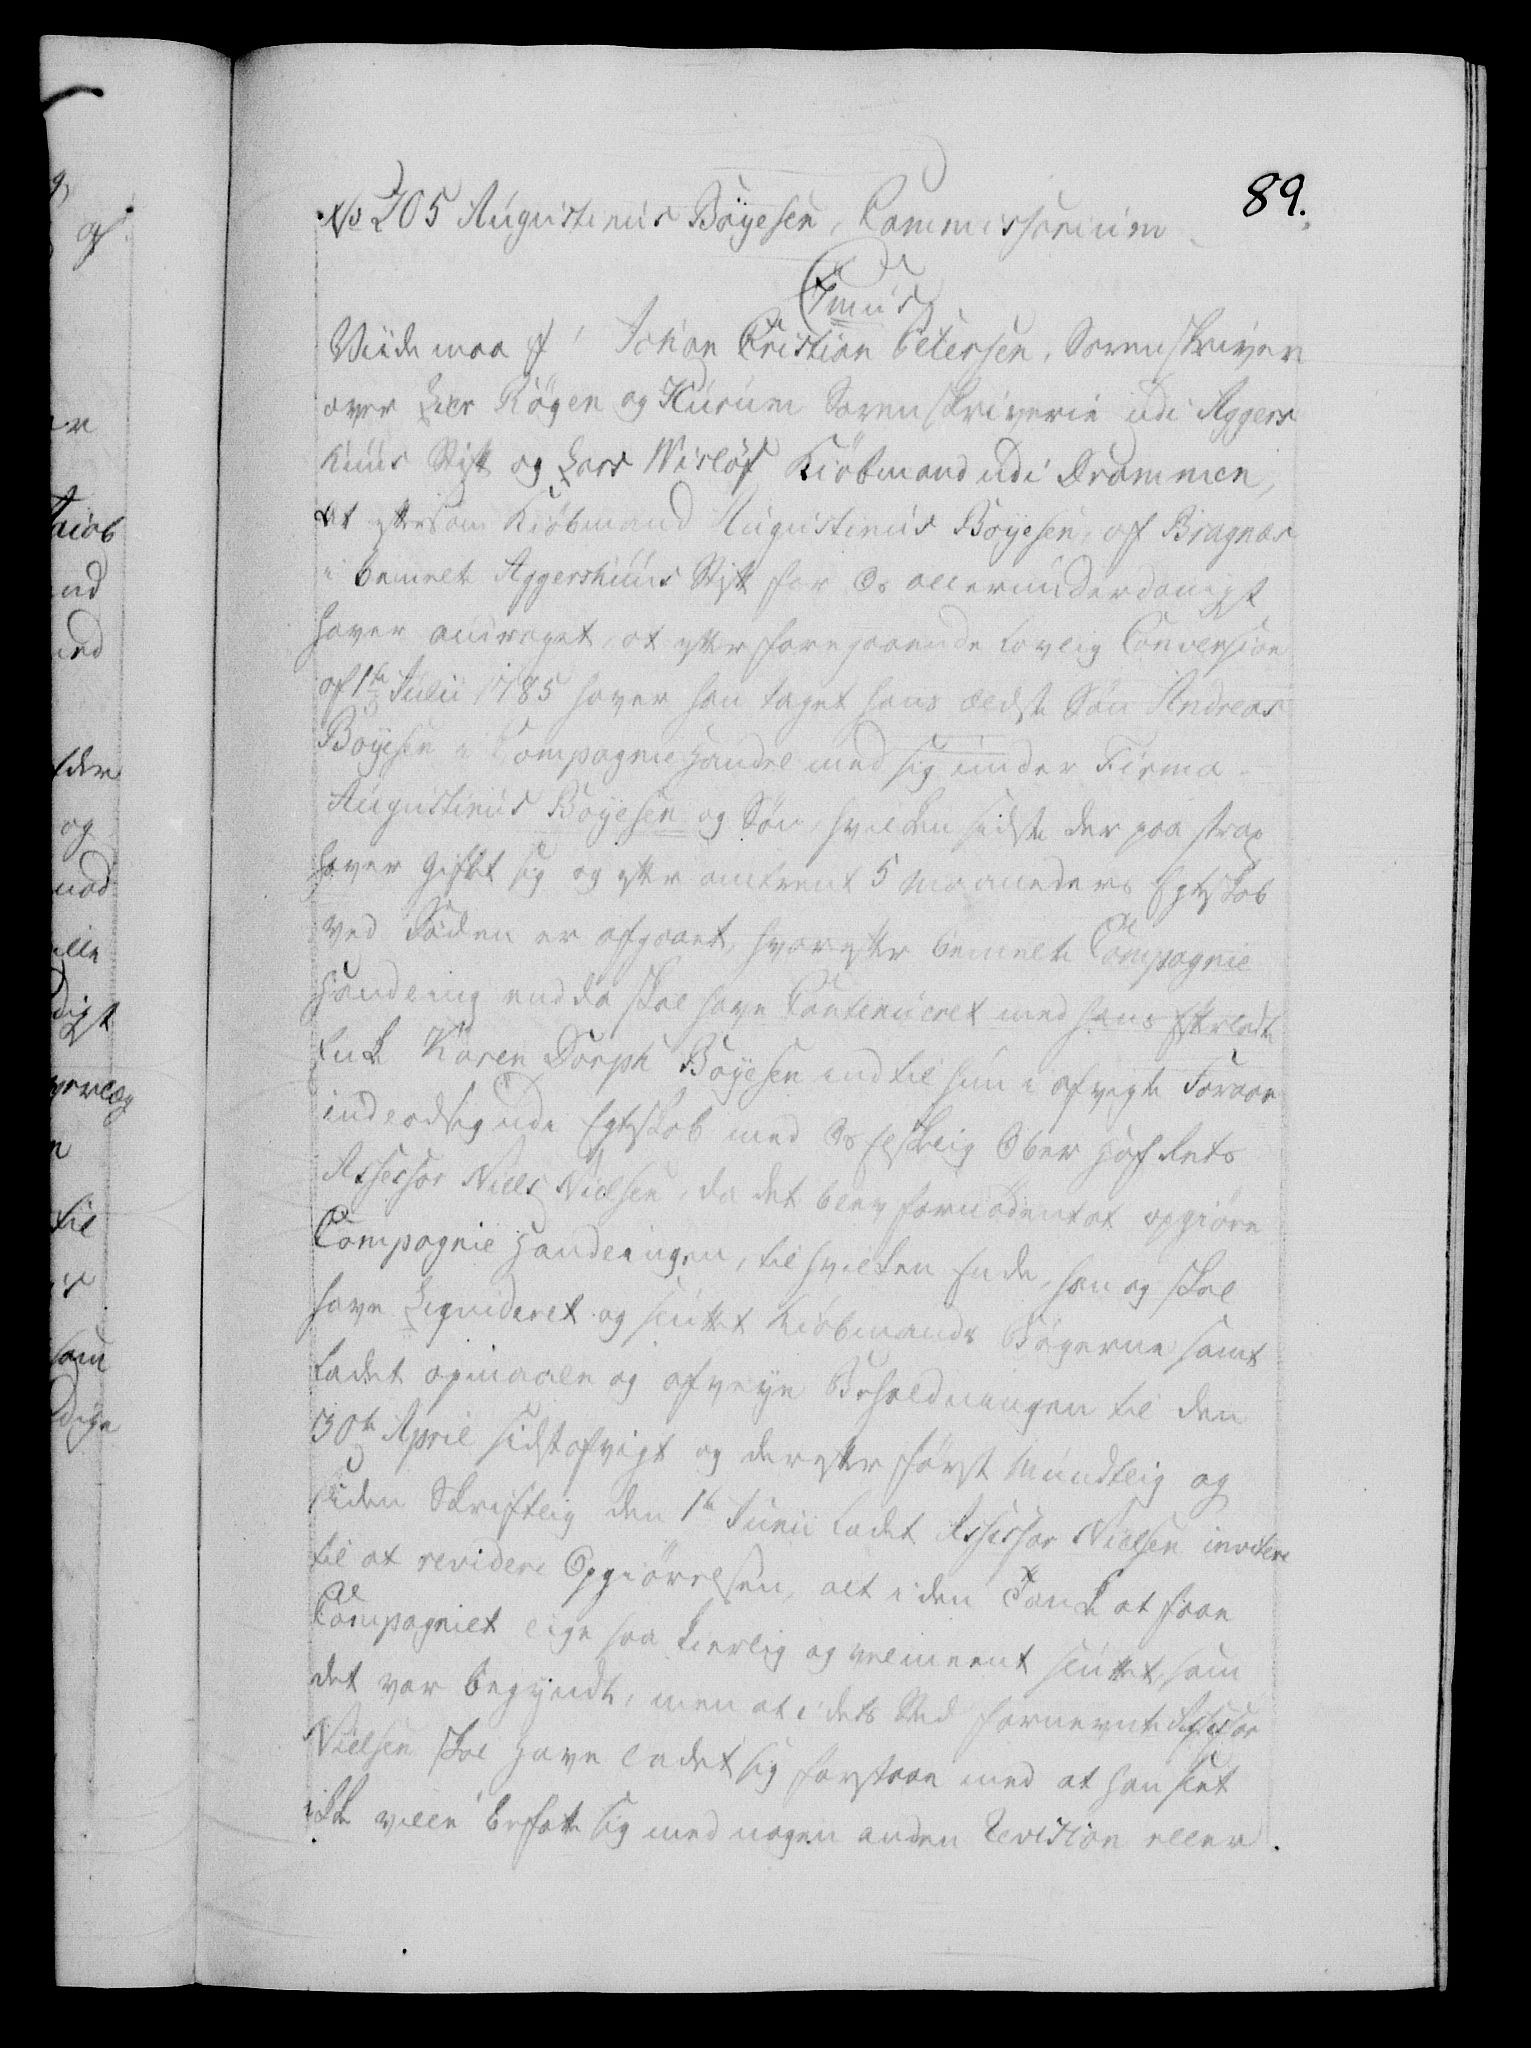 89.
No 205 Augustinus Böyesen, Commissorium
Tmus
Viide maa I, Johan Cristian Petersen, Sorenskriver
over Lier Röyen og Hurum Sorenskriverie udi Aggers
huus Stift og Lars Wislöf Kiöbmand udi Drammen,
at efftersom Kiöbmand Augustinus Böyesen, af Bragnæs
i bemelte Aggershuus Stift for Os allerunderdanigst
haver andraget, at efter foregaaende lovlig Convension
af 1te Julii 1785 haver han taget hans ældste Sön Andreas
Böyesen i Compagnie Handel med sig under Firma
Augustinus Böyesen og Sön, hvilken sidste der paa strax
haver Giftet sig og efter omtrent 5 Maaneders Egteskab
ved Döden er afgaaet, hvorefter bemelte Compagnie
Handling endda skal have Continueret med hans Efterladte
Enke Karen Dorph Böyesen indtil hun i afvigte Foraar
indlod sig udi Egteskab med Os Elskelig Ober Hof Rets
Assessor Niels Nielsen, da det blev fornödent at opgiöre
Compagnie Handlingen, til hvilken Ende, han og skal
have Liqvideret og sluttet Kiöbmands Bögerne samt
ladet opmaale og afveye Beholdningen til den
30te April sidstafvigt og derefter först Mundtlig og
siden Skriftlig den 1te Junii ladet Assessor Nielsen invitere
til at revidere Opgiörelsen, alt i den Tanke at faae
Compagniet lige saa kierlig og velmeent sluttet, som
det var begyndt, men at i dets Sted fornevnte Assessor
Nielsen skal have ladet sig forstaae med at han slet
ikke ville befatte sig med nogen anden Revision eller